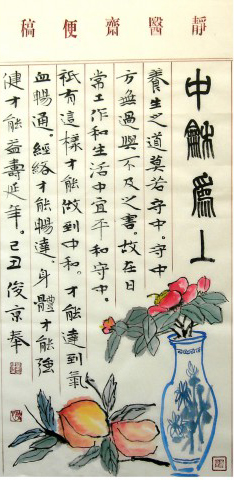 靜醫齋便稿
中龢為上
養生之道莫若守中。守中
方無過與不及之害。故在日
常工作和生活中宜平和守中。
祇有這樣才能做到中和。才能達到氣
血暢通。經絡才能暢達。身體才能強
健才能益壽延年。己丑俊京奉